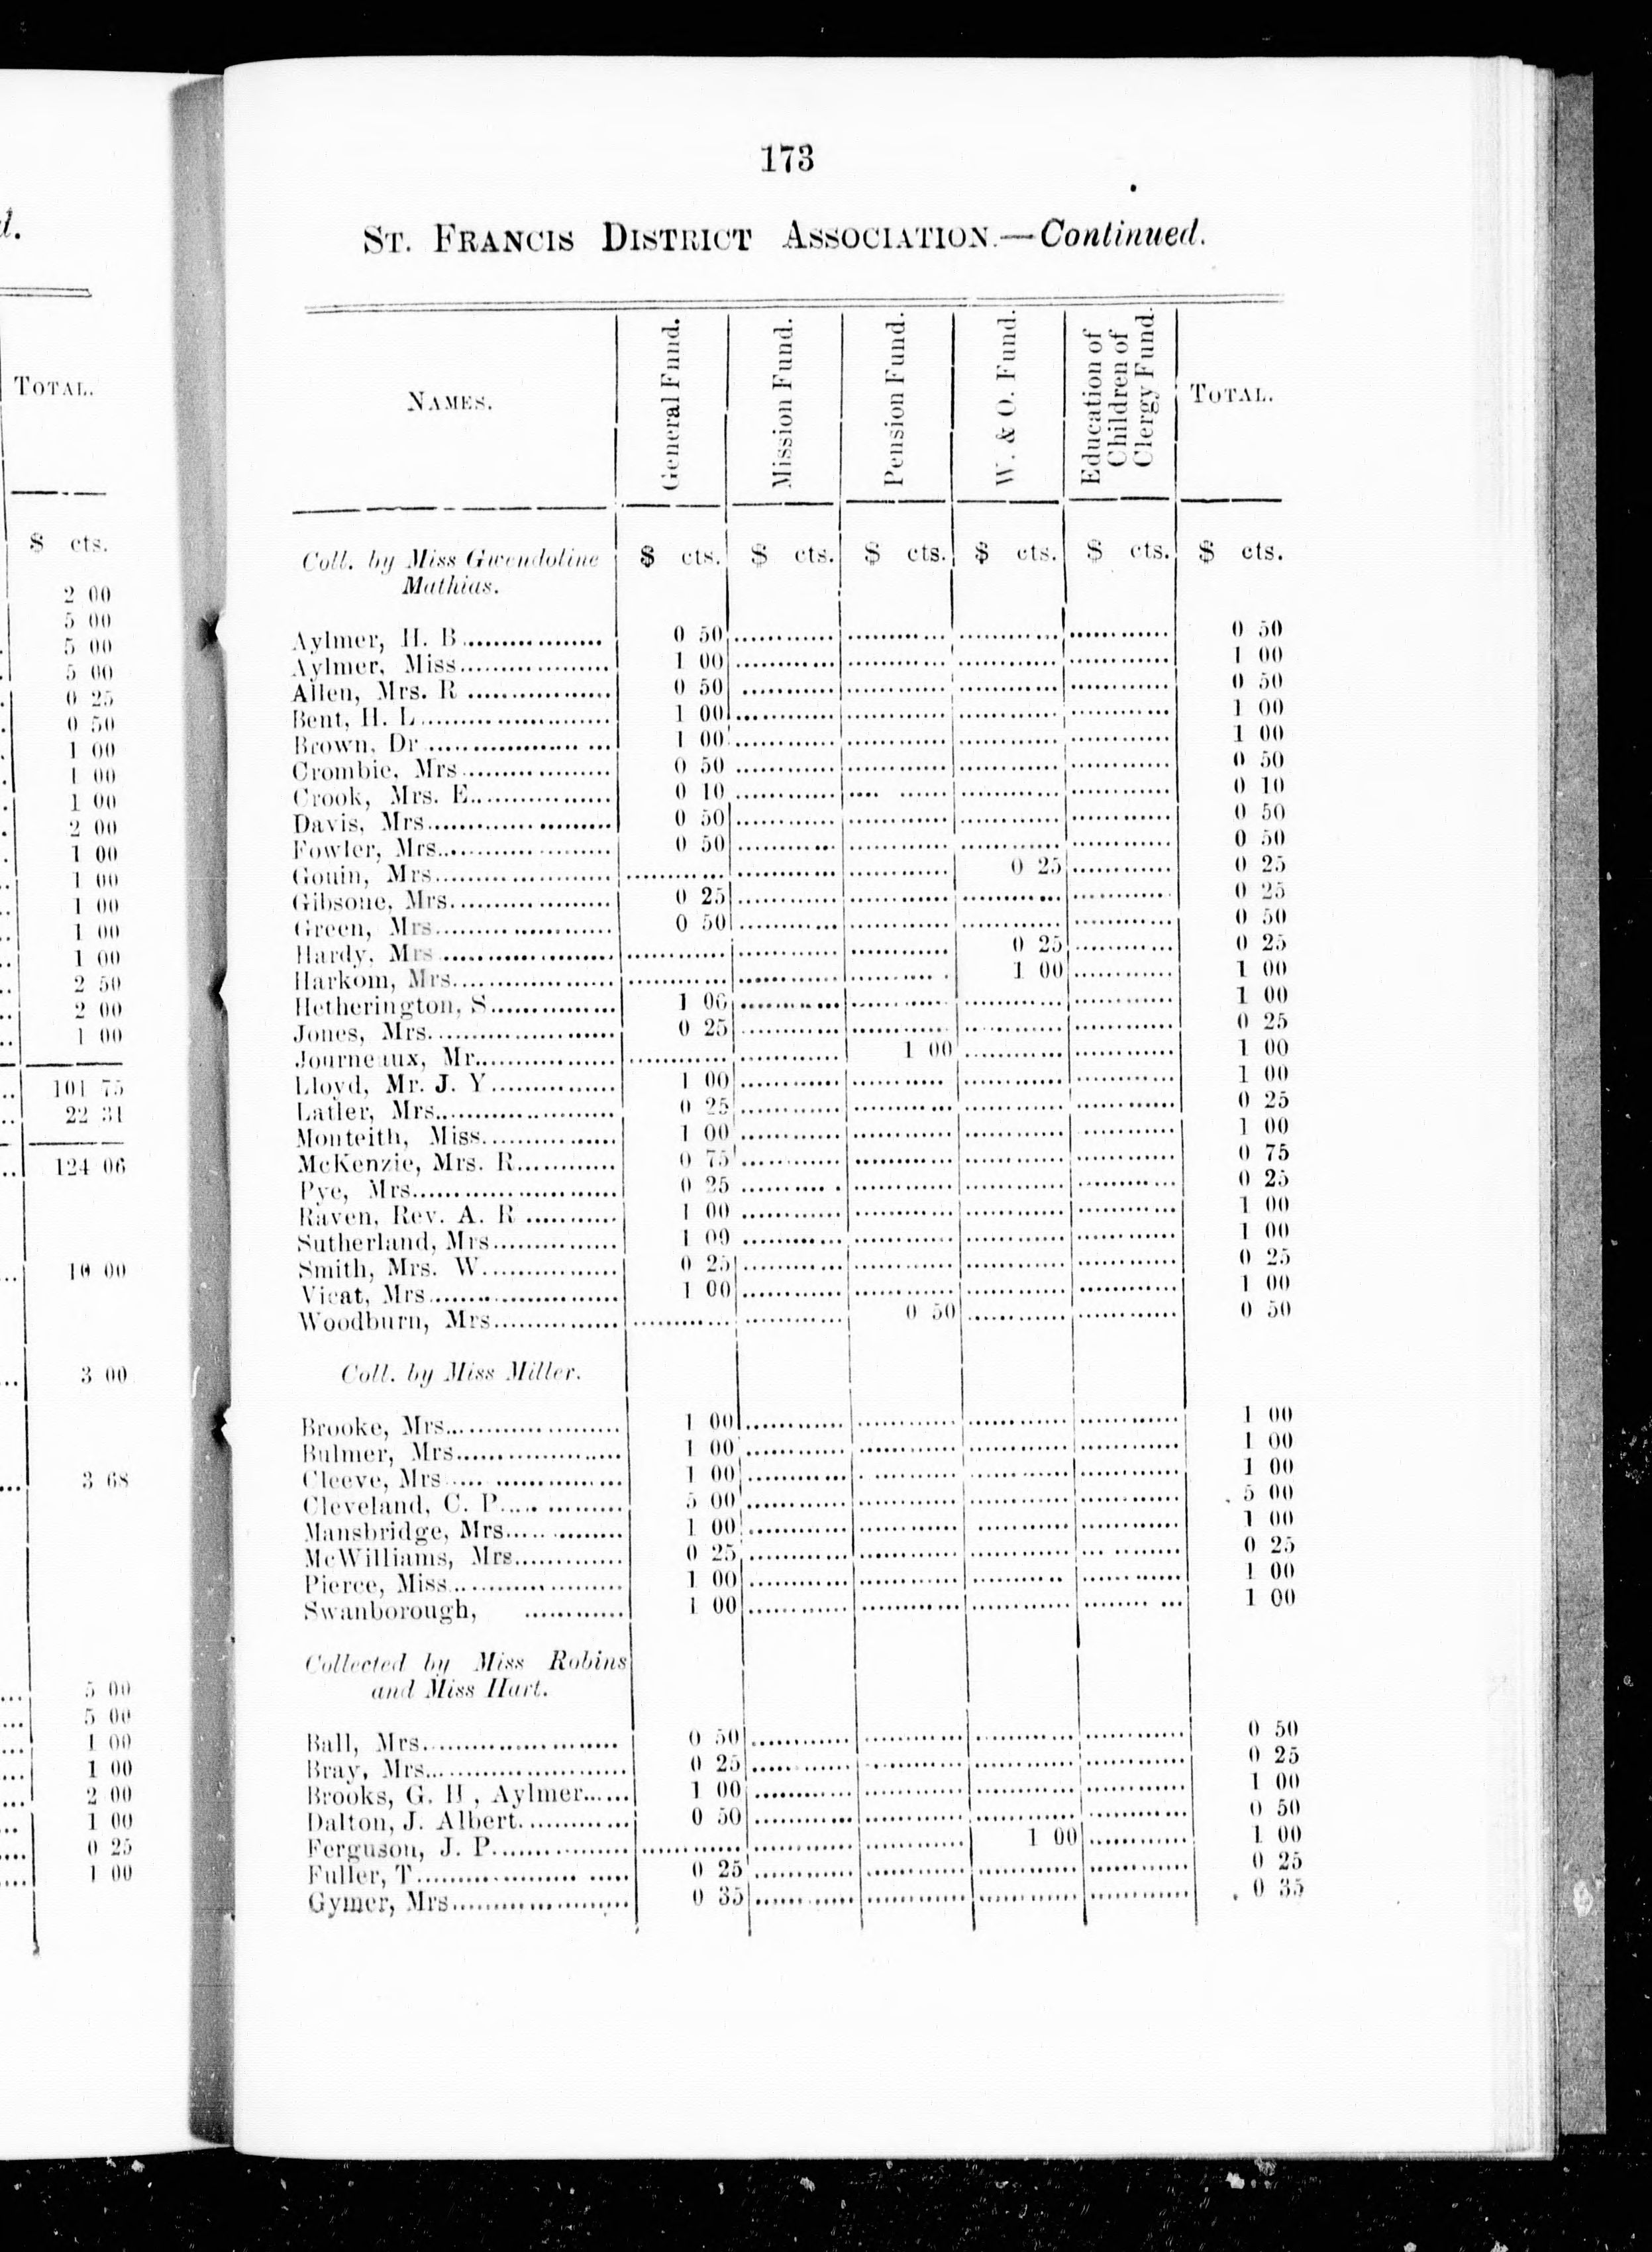 d.
TOTAL.
$ cts.
2 00
5 00
5 00
5 00
0 25
0 50
1 00
1 00
1 00
2 00
1 00
1 00
1 00
1 00
1 00
2 50
2 00
1 00
101 75
22 31
124 06
10 00
3 00
3 68
5 00
5 00
1 00
1 00
2 00
1 00
0 25
1 00
173
ST. FRANCIS DISTRICT ASSOCIATION.—Continued.
NAMES. General Fund. Mission Fund. Pension Fund. W. & O. Fund. Education of Children of Clergy Fund. TOTAL.
Coll. by Miss Gwendoline $ cts. $ cts. $ cts. $ cts. $ cts. $ cts.
Mathias.
Aylmer, H. B. 0 50 0 50
Aylmer, Miss 1 00 1 00
Allen, Mrs. R 0 50 0 50
Bent, H. L 1 00 1 00
Brown, Dr 1 00 1 00
Crombie, Mrs 0 50 0 50
Crook, Mrs. E 0 10 0 10
Davis, Mrs 0 50 0 50
Fowler, Mrs 0 50 0 50
Gouin, Mrs 0 25 0 25
Gibsone, Mrs 0 25 0 25
Green, Mrs 0 50 0 50
Hardy, Mrs 0 25 0 25
Harkom, Mrs 1 00 1 00
Hetherington, S 1 00 1 00
Jones, Mrs 0 25 0 25
Journeaux, Mr 1 00 1 00
Lloyd, Mr. J. Y 1 00 1 00
Latler, Mrs 0 25 0 25
Monteith, Miss 1 00 1 00
McKenzie, Mrs. R 0 75 0 75
Pye, Mrs 0 25 0 25
Raven, Rev. A. R 1 00 1 00
Sutherland, Mrs 1 00 1 00
Smith, Mrs. W 0 25 0 25
Vicat, Mrs 1 00 1 00
Woodburn, Mrs 0 50 0 50
Coll. by Miss Miller.
Brooke, Mrs 1 00 1 00
Bulmer, Mrs 1 00 1 00
Cleeve, Mrs 1 00 1 00
Cleveland, C. P. 5 00 5 00
Mansbridge, Mrs 1 00 1 00
McWilliams, Mrs 0 25 0 25
Pierce, Miss 1 00 1 00
Swanborough, 1 00 1 00
Collected by Miss Robins
and Miss Hart.
Ball, Mrs 0 50 0 50
Bray, Mrs 0 25 0 25
Brooks, G. H , Aylmer 1 00 1 00
Dalton, J. Albert 0 50 0 50
Ferguson, J. P. 1 00 1 00
Fuller, T 0 25 0 25
Gymer, Mrs 0 35 0 35